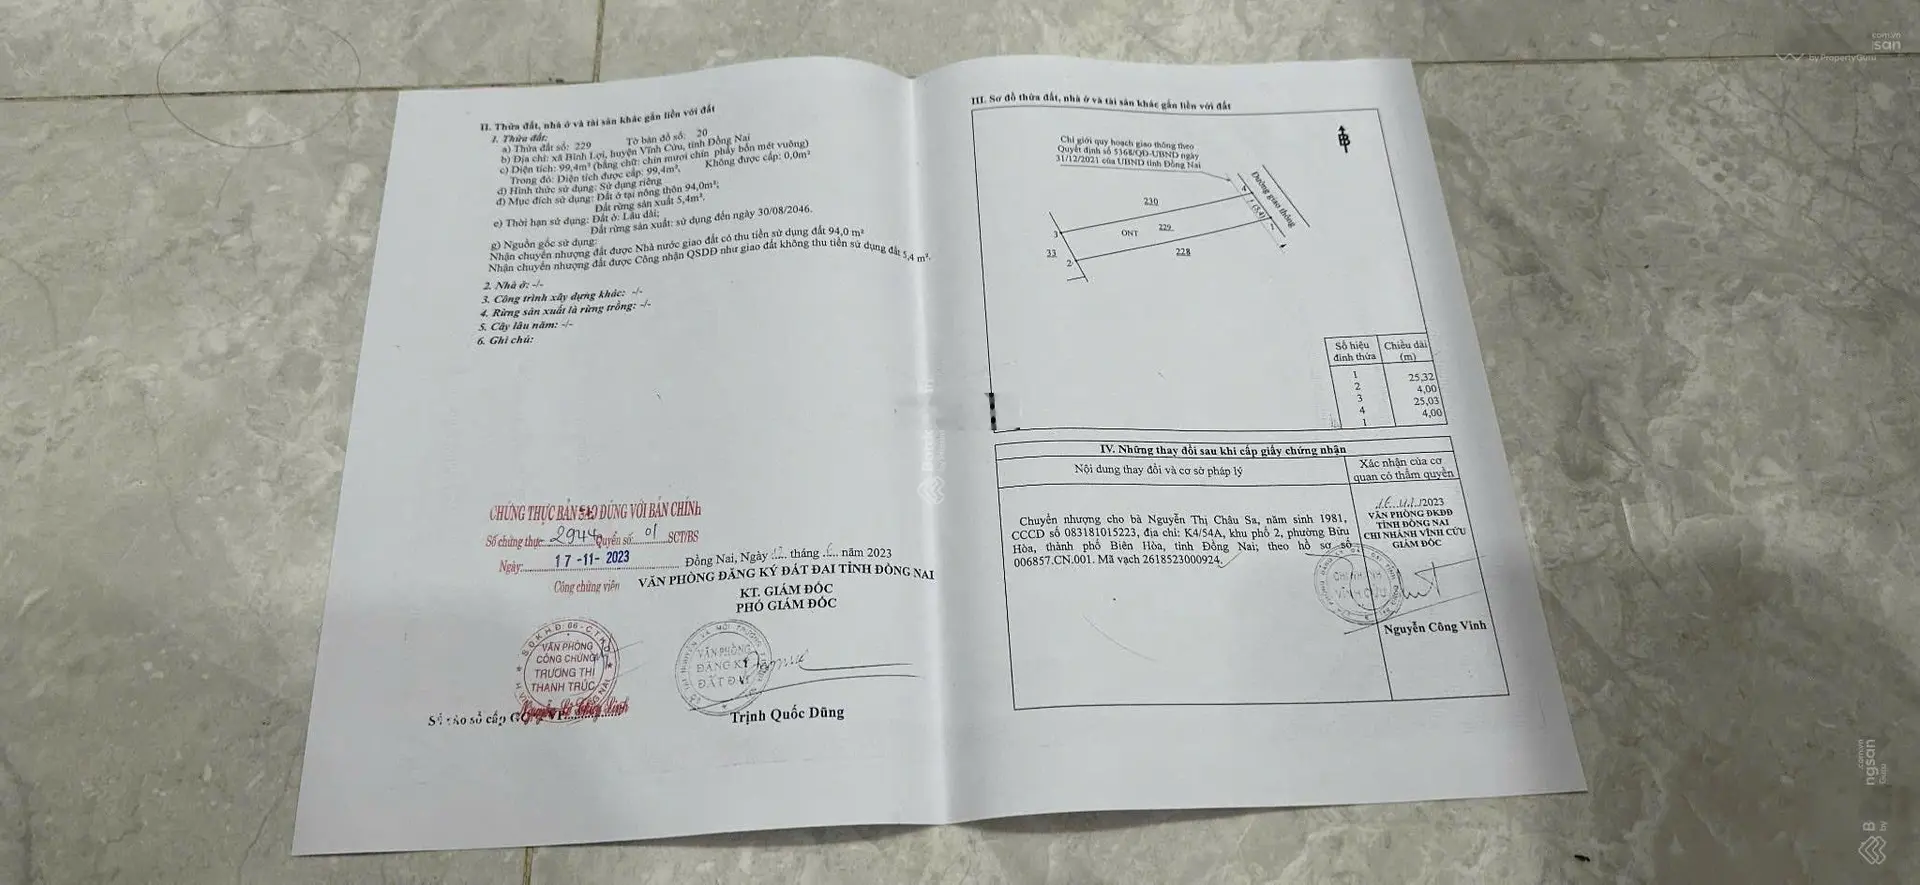 II. Thửa đất, nhà ở và tài sản khác gắn liền với đất
1. Thửa đất:
a) Thửa đất số: 229 Tờ bản đồ số: 20
b) Địa chỉ: xã Bình Lợi, huyện Vĩnh Cửu, tỉnh Đồng Nai
c) Diện tích: 99,4m² (bằng chữ: chín mươi chín phẩy bốn mét vuông)
Trong đó: Diện tích được cấp: 99,4m², Không được cấp: 0,0m²
d) Hình thức sử dụng: Sử dụng riêng
đ) Mục đích sử dụng: Đất ở tại nông thôn 94,0m²;
Đất rừng sản xuất 5,4m².
e) Thời hạn sử dụng: Đất ở: Lâu dài;
Đất rừng sản xuất: sử dụng đến ngày 30/08/2046.
g) Nguồn gốc sử dụng:
Nhận chuyển nhượng đất được Nhà nước giao đất có thu tiền sử dụng đất 94,0 m²
Nhận chuyển nhượng đất được Công nhận QSDĐ như giao đất không thu tiền sử dụng đất 5,4 m².
2. Nhà ở: -/-
3. Công trình xây dựng khác: -/-
4. Rừng sản xuất là rừng trồng: -/-
5. Cây lâu năm: -/-
6. Ghi chú:
CHỨNG THỰC BẢN SAO ĐÚNG VỚI BẢN CHÍNH
Số chứng thực 2944 Quyển số: 01 SCT/BS
Ngày: 17-11-2023
Công chứng viên
Đồng Nai, Ngày tháng năm 2023
VĂN PHÒNG ĐĂNG KÝ ĐẤT ĐAI TỈNH ĐỒNG NAI
KT. GIÁM ĐỐC
PHÓ GIÁM ĐỐC
VĂN PHÒNG
CÔNG CHỨNG
TRƯƠNG THỊ
THANH TRÚC
VĂN PHÒNG
ĐĂNG KÝ
ĐẤT ĐAI
Trịnh Quốc Dũng
III. Sơ đồ thửa đất, nhà ở và tài sản khác gắn liền với đất
Chỉ giới quy hoạch giao thông theo
Quyết định số 5368/QĐ-UBND ngày
31/12/2021 của UBND tỉnh Đồng Nai
Đường giao thông
230
4
1
(5,4)
3
ONT
229
33
2
228
Số hiệu đỉnh thửa Chiều dài (m)
1
25,32
2
4,00
3
25,03
4
4,00
1
IV. Những thay đổi sau khi cấp giấy chứng nhận
Nội dung thay đổi và cơ sở pháp lý
Xác nhận của cơ
quan có thẩm quyền
Chuyển nhượng cho bà Nguyễn Thị Châu Sa, năm sinh 1981,
CCCD số 083181015223, địa chỉ: K4/54A, khu phố 2, phường Bửu
Hòa, thành phố Biên Hòa, tỉnh Đồng Nai; theo hồ sơ số
006857.CN.001. Mã vạch 2618523000924.
/2023
VĂN PHÒNG ĐKĐĐ
TỈNH ĐỒNG NAI
CHI NHÁNH VĨNH CỬU
GIÁM ĐỐC
CHI NHÁNH
VĨNH CỬU
Nguyễn Công Vinh
by PropertyGuru